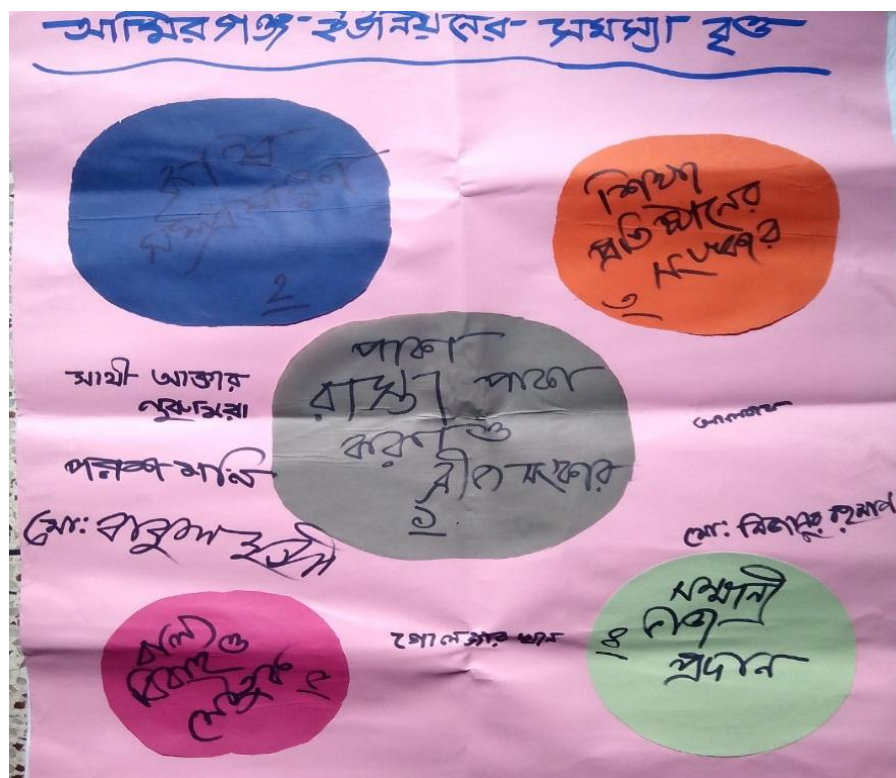 আমিরগঞ্জ ইউনিয়নের সমস্যা বৃত্ত
কৃষি
সম্প্রসারণ
২
শিক্ষা
প্রতিষ্ঠানের
সংস্কার
৩
পাকা
রাস্তা পাকা
করণ ও
ব্রীজ সংস্কার
১
সাথী আক্তার
পরশ মনি
মো: বাবুল
মো: মিজানুর রহমান
বাল্য
বিবাহ ও
যৌতুক
গোলজার খান
সম্মানী
ভাতা
প্রদান
৪